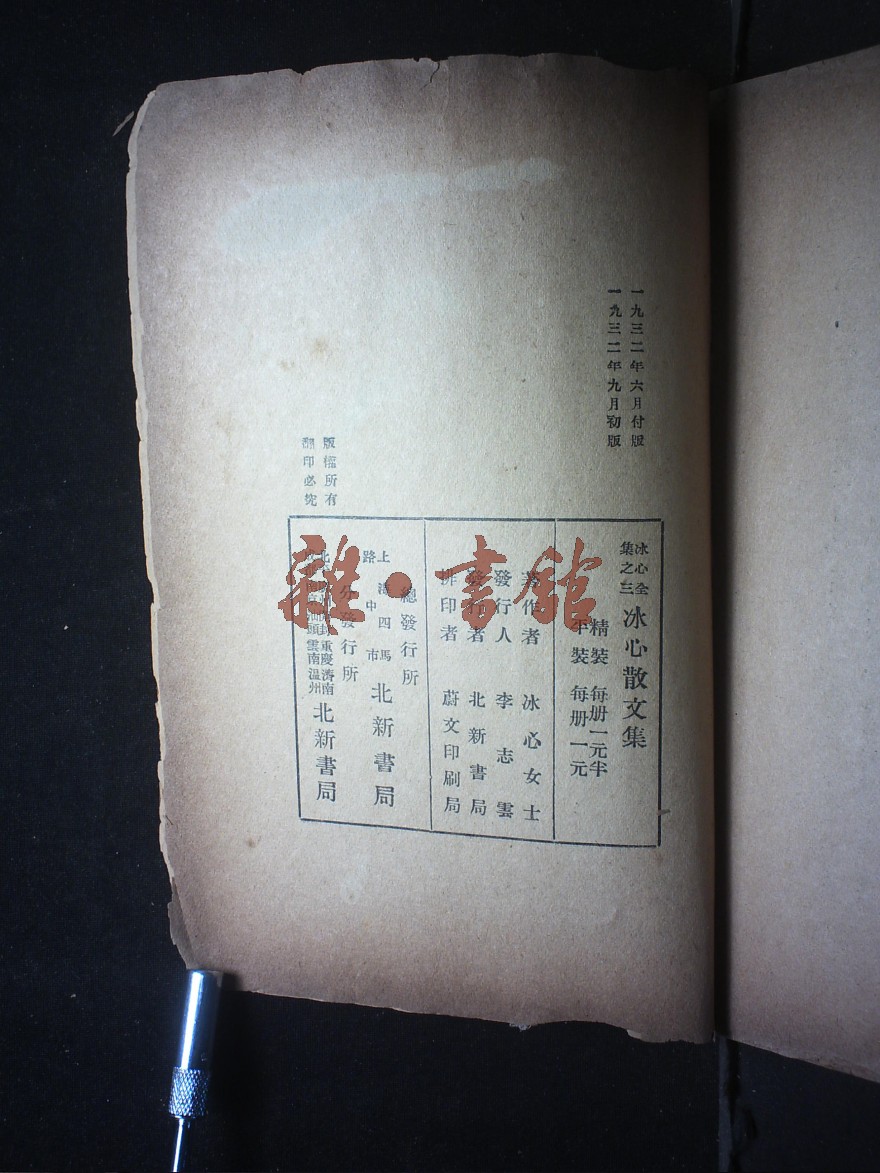 一九三二年六月付版
一九三二年九月初版
版權所有
翻印必究
冰心全集之三
冰心散文集
精裝 每册一元半
平裝 每册一元
著作者 冰心女士
發行人 李志雲
發行者 北新書局
排印者 蔚文印刷局
總發行所
上海四馬路中市 北新書局
分發行所
重慶濟南
汕頭雲南溫州
北新書局
雜·書館